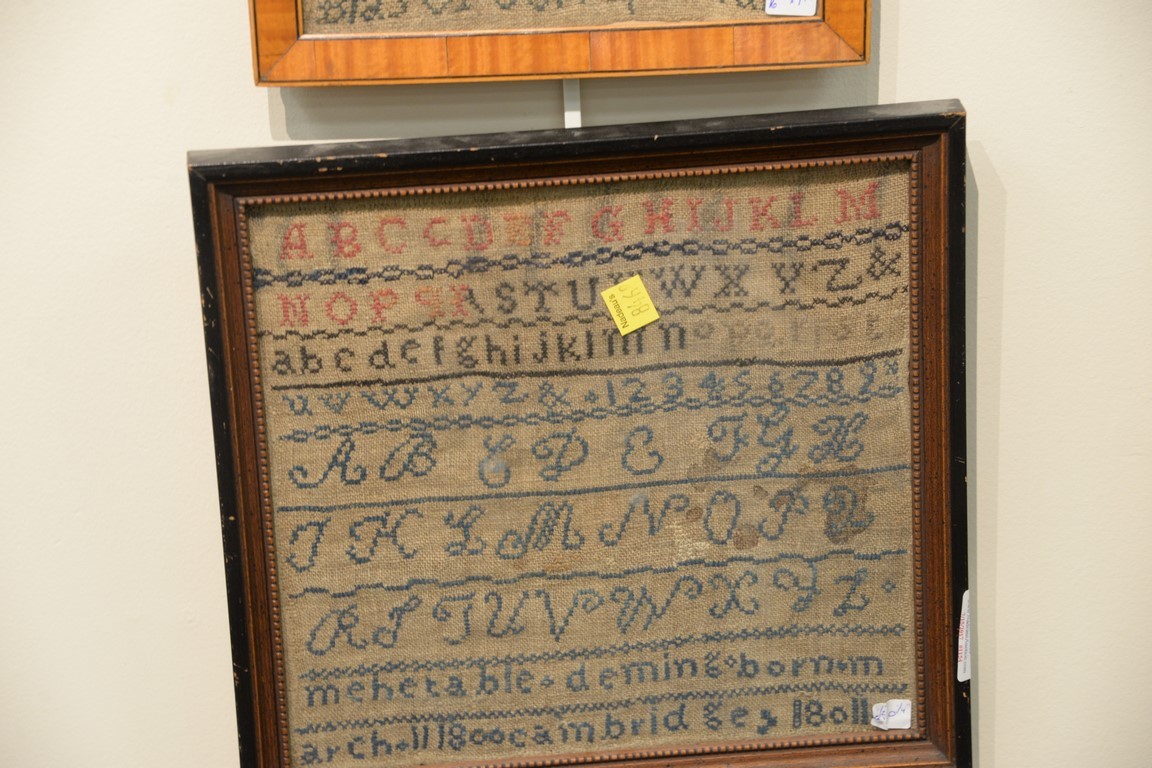 A B C C D E F G H I J K L M
N O P Q R S T U W X Y Z &
Nadeau's
a b c d e f g h i j k l m n o p q
u v w x y z & 1 2 3 4 5 6 7 8 9
A B C D E F G H
J K L M N O P Q
R S T U V W X Y Z
mehetable deming born m
arch 11 1800 cambridge 1811